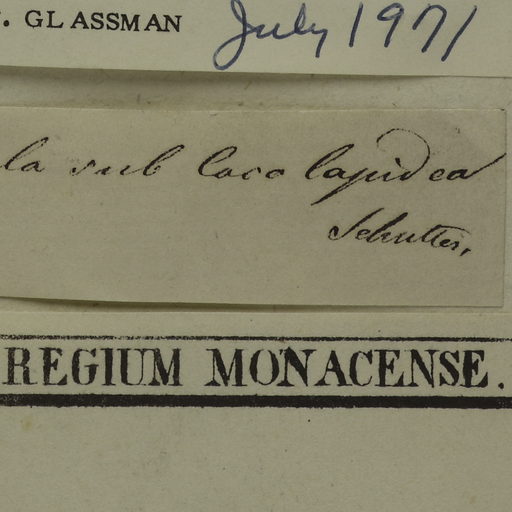 . GLASSMAN July 1971
la sub loco lapidea
Schutter,
REGIUM MONACENSE.